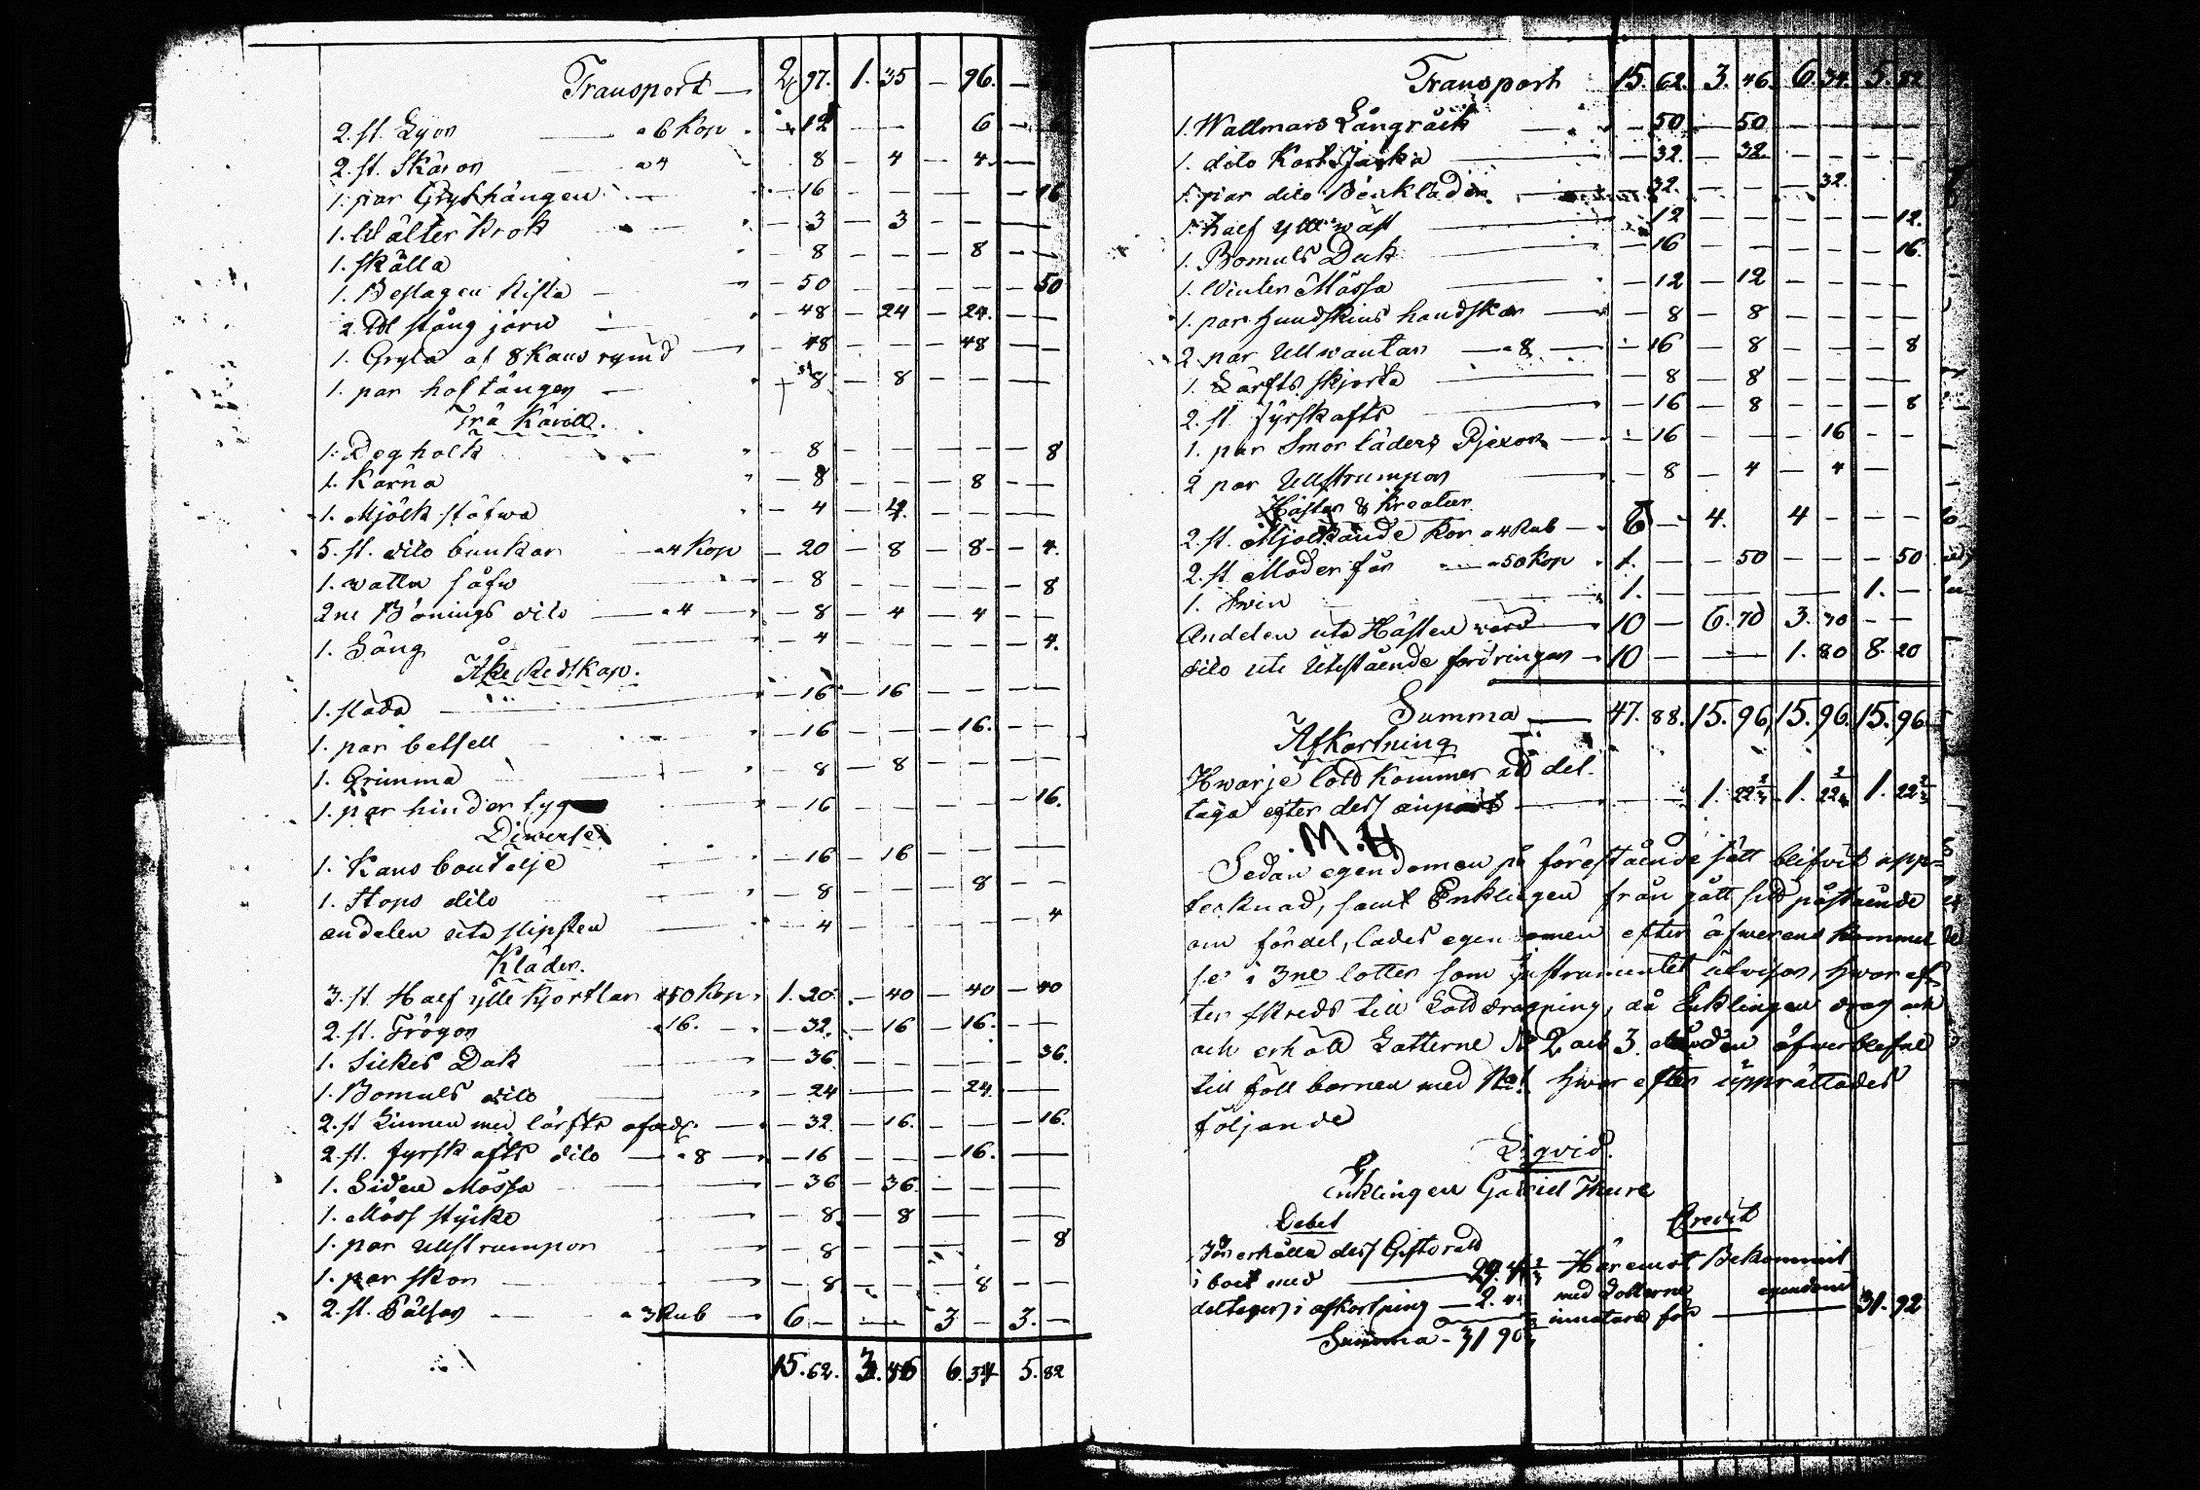 Transport — 2 97. 1. 35 — 96. —
2. st. Lyor — a 6 Kop — 12 — — 6 —
2. st. Skäror — a 4 — 8 — 4 — 4 — —
1. par Grythängen — — 16 — — — — — 16
1. Wälter Krok — 3 — 3 — — — —
1. skälla — 8 — — — 8 — —
1. Beslagen kista — 50 — — — — — 50
2. L℔ stång järn — 48 — 24 — 24. — —
1. Gryta af 8 Kans rymd — 48 — — — 48 — —
1. par hoftänger — 8 — 8 — — — —
Trä Käril.
1. Degholk — 8 — — — — — 8
1. Kärna — 8 — — — 8 — —
1. Mjölk stäfwa — 4 — 4. — — — —
5. st. dito bunkar — a 4 Kop — 20 — 8 — 8 — 4.
1. watten såfw — 8 — — — — — 8
2ne Bönings dito — a 4 — 8 — 4 — 4 — —
1. Säng — 4 — — — — — 4.
Åke Redskap.
1. släda — 16 — 16 — — — —
1. par betsell — 16 — — — 16. — —
1. Grimma — 8 — 8 — — — —
1. par hinder tyg — 16 — — — — — 16.
Diwerse
1. Kans boutelje — 16 — 16 — — — —
1. Stops dito — 8 — — — 8 — —
andelen uta slipsten — 4 — — — — — 4
Kläder.
3. st. Half ylle kjortlar a 40 Kop. 1. 20. — 40 — 40 — 40
2. st. Tröyor a 16. — 32. — 16 — 16. — —
1. Silkes Duk — 36 — — — — — 36.
1. Bomuls dito — 24 — — — 24. — —
2. st Linnen med lärfts ofwdl. — 32. — 16. — — — 16.
2. st. fyrskafts dito — a 8 — 16 — — — 16. — —
1. Siden Mössa — 36 — 36. — — — —
1. Möss stycke — 8 — 8 — — — —
1. par Ullstrumpor — 8 — — — — — 8
1. par skor — 8 — — — 8 — —
2. st. Pälsar — a 3 Rub — 6 — — — 3 — 3. —
15. 62. 3. 46 6. 34 5. 82
Transport 15. 62. 3. 46. 6. 34. 5. 82
1. Wallmars Långråck — 50 — 50 — — — —
1. dito Kort Jacka — 32. — 32 — — — —
1. par dito Benkläder — 32. — — — 32.
1. Half ylle wäst — 12 — — — — — 12.
1. Bomuls Duk — 16 — — — — — 16.
1. Winter Mössa — 12 — 12 — — — —
1. par Hundskins handskar — 8 — 8 — — — —
2. par Ullwantar — a 8 — 16 — 8 — — — 8
1. Lärfts skjorta — 8 — 8 — — — —
2. st. fyrskafts — 16 — 8 — — — 8
1. par Smorläders Pjexor — 16 — — — 16 — —
2 par Ullstrumpor — 8 — 4 — 4 —
Hästar & Kreatur.
2. st. Mjölkande Kor a 4 Rub — 8 — 4. 4 — — —
2. st. Moder får — a 50 Kop 1. — — 50 — — — 50
1. Swin — 1. — — — — 1. —
Andelen uta Hästen wärd — 10 — 6. 70 3. 30 — —
dito uti Utestående fordringar — 10 — — — 1. 80 8. 20
Summa — 47. 88. 15. 96. 15. 96. 15. 96
Afkortning
Hwarje lott kommer att del-
taga efter dess anpart — 1. 22 2/3 1. 22 2/3 1. 22 2/3
M. H
Sedan egendomen på förestående sätt blifwit upp-
tecknad, samt Enklingen från gått sitt påstående
om fördel, lades egendomen efter öfwerens kommel
se i 3ne lotter som Instrumentet utwisar, hwar ef-
ter skreds till Lottdragning, då Enklingen drog och
och erhöll Lotterne № 2 och 3. öfwerblefne
till föll barnen med No 1. hwar efter upprättades
följande
Liqvid.
Enklingen Gabriel Thure
Debet
Credit
erhålla dess Giftorätt
i boet med
deltager i afkortning — 2.
Summa — 31 90
Häremot Bekommit
med Lotterne egendomen
innotera för — 31. 92